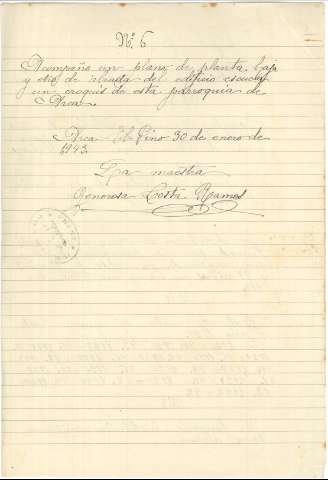 Nº 6
Acompaño un plano de planta baja
y otro de planta del edificio escuela
un croquis de esta parroquia de
Arca.
Arca - El Pino 30 de enero de
1943.
La maestra
Costa Ramos